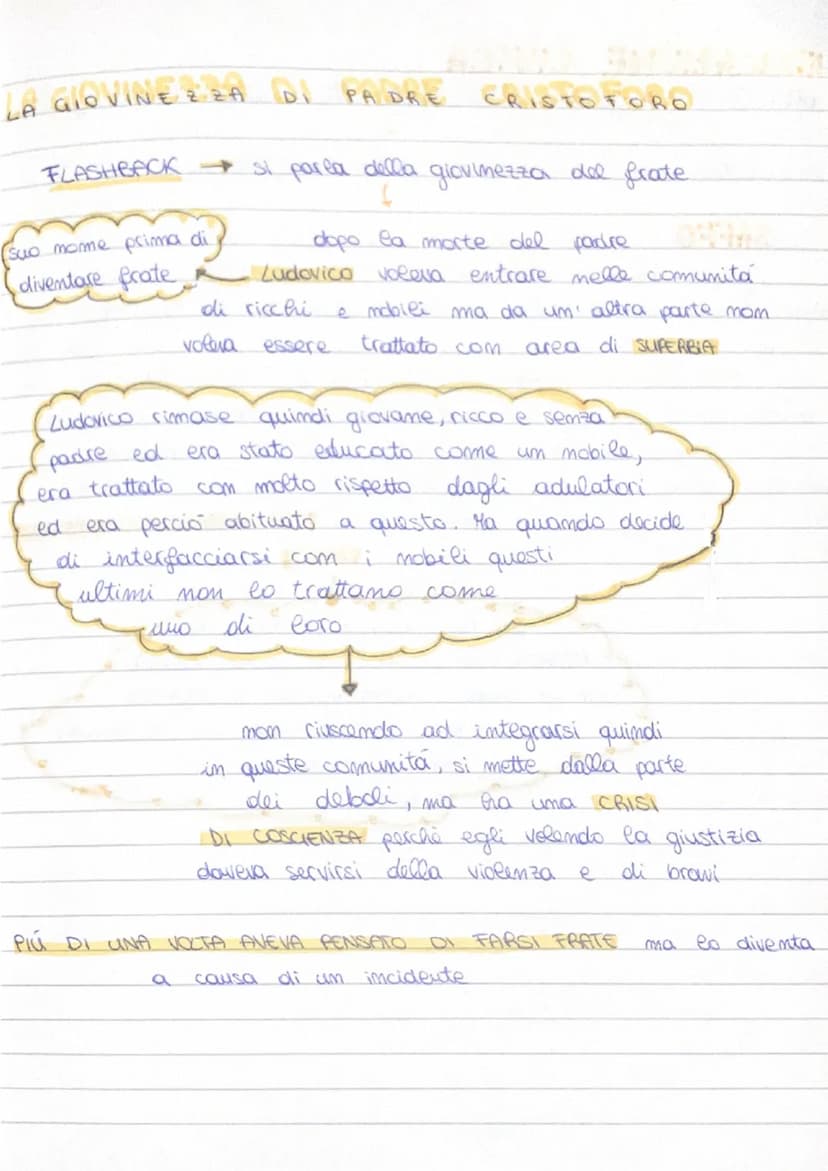 LA GIOVINEZZA DI PADRE CRISTOFORO
FLASHBACK → si parla della giovinezza del frate
suo nome prima di
diventare frate
dopo la morte del padre
Ludovico voleva entrare nelle comunità
di ricchi e nobili ma da un' altra parte non
voleva essere trattato con area di SUPERBIA
Ludovico rimase quindi giovane, ricco e senza
padre ed era stato educato come un nobile,
era trattato con molto rispetto dagli adulatori
ed era perciò abituato a questo. Ma quando decide
di interfacciarsi con i nobili questi
ultimi non lo trattano come
uno di loro
non riuscendo ad integrarsi quindi
in queste comunità, si mette dalla parte
dei deboli, ma ha una CRISI
DI COSCIENZA perchè egli volendo la giustizia
doveva servirsi della violenza e di bravi
PIÚ DI UNA VOLTA AVEVA PENSATO DI FARSI FRATE ma lo diventa
a causa di un incidente